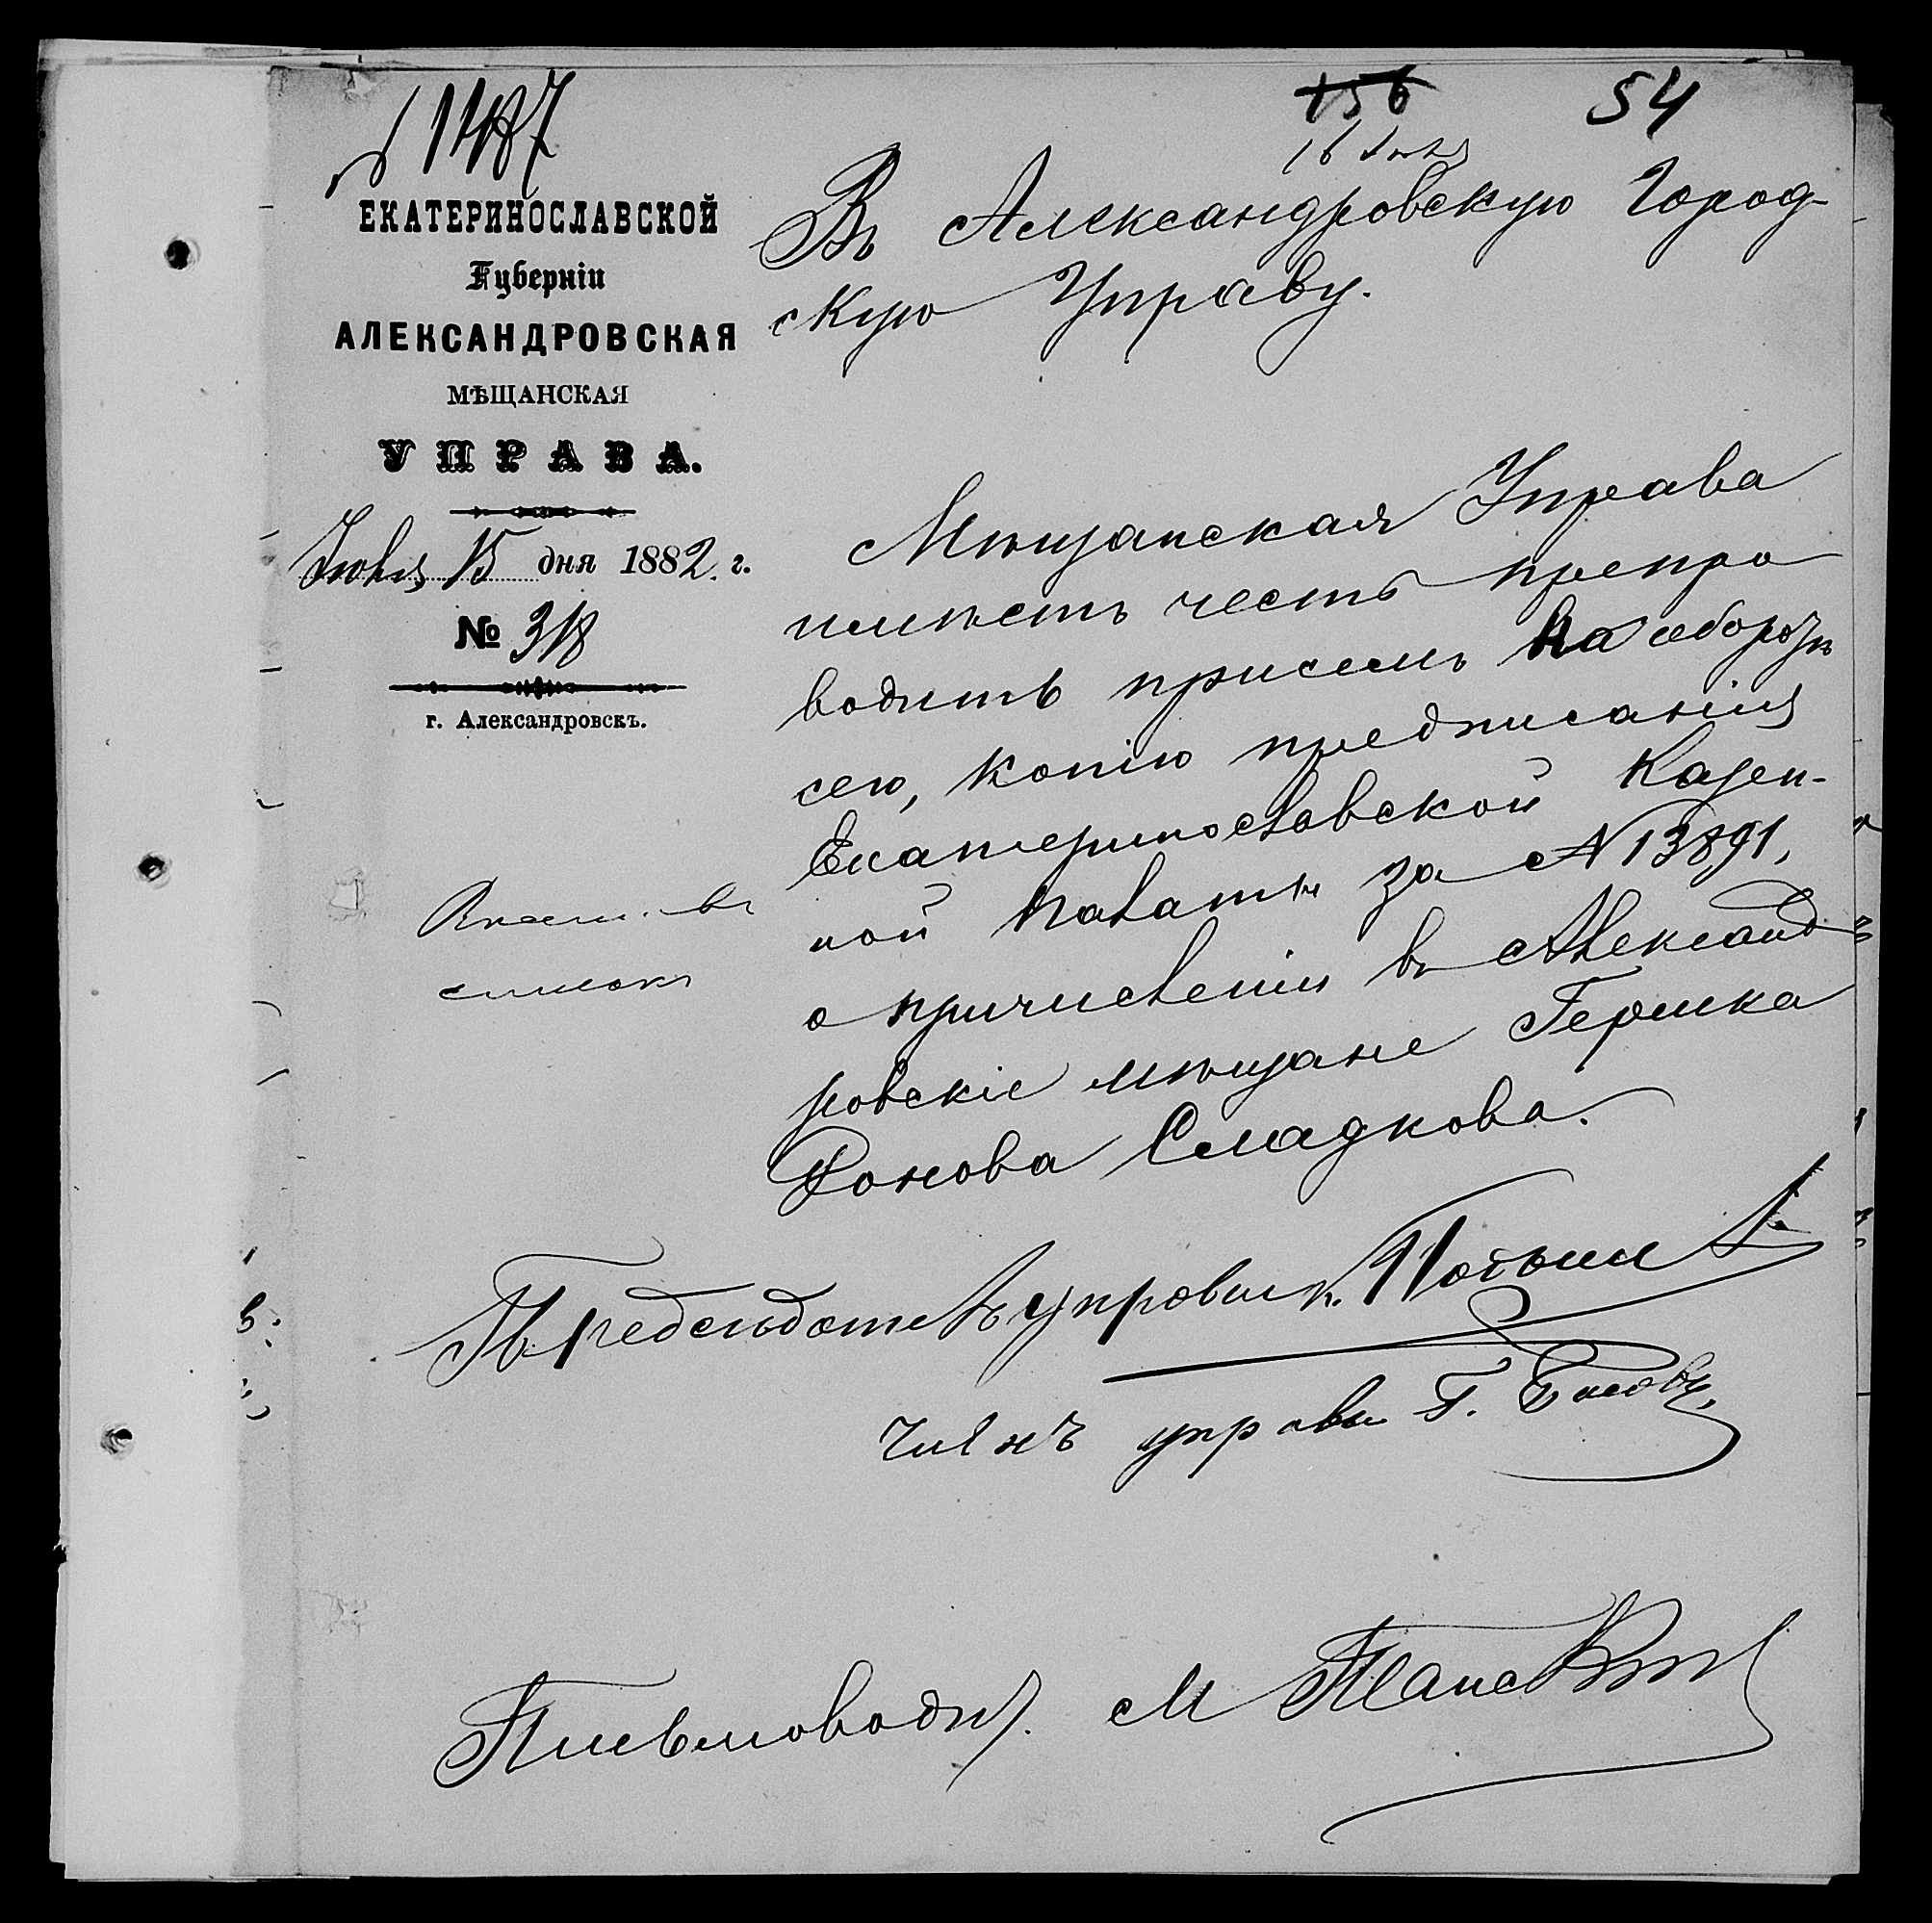 1487
156
54
ЕКАТЕРИНОСЛАВСКОЙ
Губерніи
АЛЕКСАНДРОВСКАЯ
МѢЩАНСКАЯ
УПРАВА.
15 дня 1882 г.
№ 318
г. Александровскъ.
Въ Александровскую Город-
скую Управу.
Мѣщанская Управа
имѣетъ честь препро
водить при семъ на оборотѣ
сего, копію предписанія
Екатеринославской Казен-
ной Палаты за № 13891,
о причисленіи въ Александ
ровскіе мѣщане Гершка
Сладкова.
списокъ
Предсѣдатель управы
Членъ управы Г.
Письмовод. М